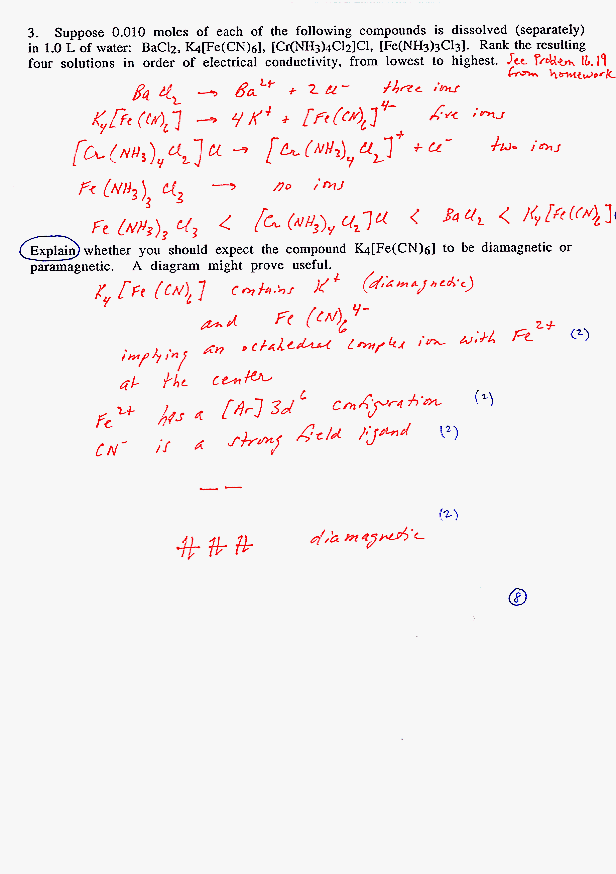 3. Suppose 0.010 moles of each of the following compounds is dissolved (separately)
in 1.0 L of water: BaCl2, K4[Fe(CN)6], [Cr(NH3)4Cl2]Cl, [Fe(NH3)3Cl3]. Rank the resulting
four solutions in order of electrical conductivity, from lowest to highest. See Problem 16.19
from homework
Ba Cl2 → Ba2+ + 2 Cl- three ions
K4[Fe(CN)6] → 4 K+ + [Fe(CN)6]4- five ions
[Cr(NH3)4Cl2]Cl → [Cr(NH3)4Cl2]+ + Cl- two ions
Fe(NH3)3 Cl3 → no ions
Fe(NH3)3 Cl3 < [Cr(NH3)4Cl2]Cl < BaCl2 < K4[Fe(CN)6]
Explain whether you should expect the compound K4[Fe(CN)6] to be diamagnetic or
paramagnetic. A diagram might prove useful.
K4 [Fe(CN)6] contains K+ (diamagnetic)
and Fe(CN)6 4-
implying an octahedral complex ion with Fe2+ (2)
at the center
Fe2+ has a [Ar] 3d6 configuration (2)
CN- is a strong field ligand (2)
(2)
diamagnetic
8